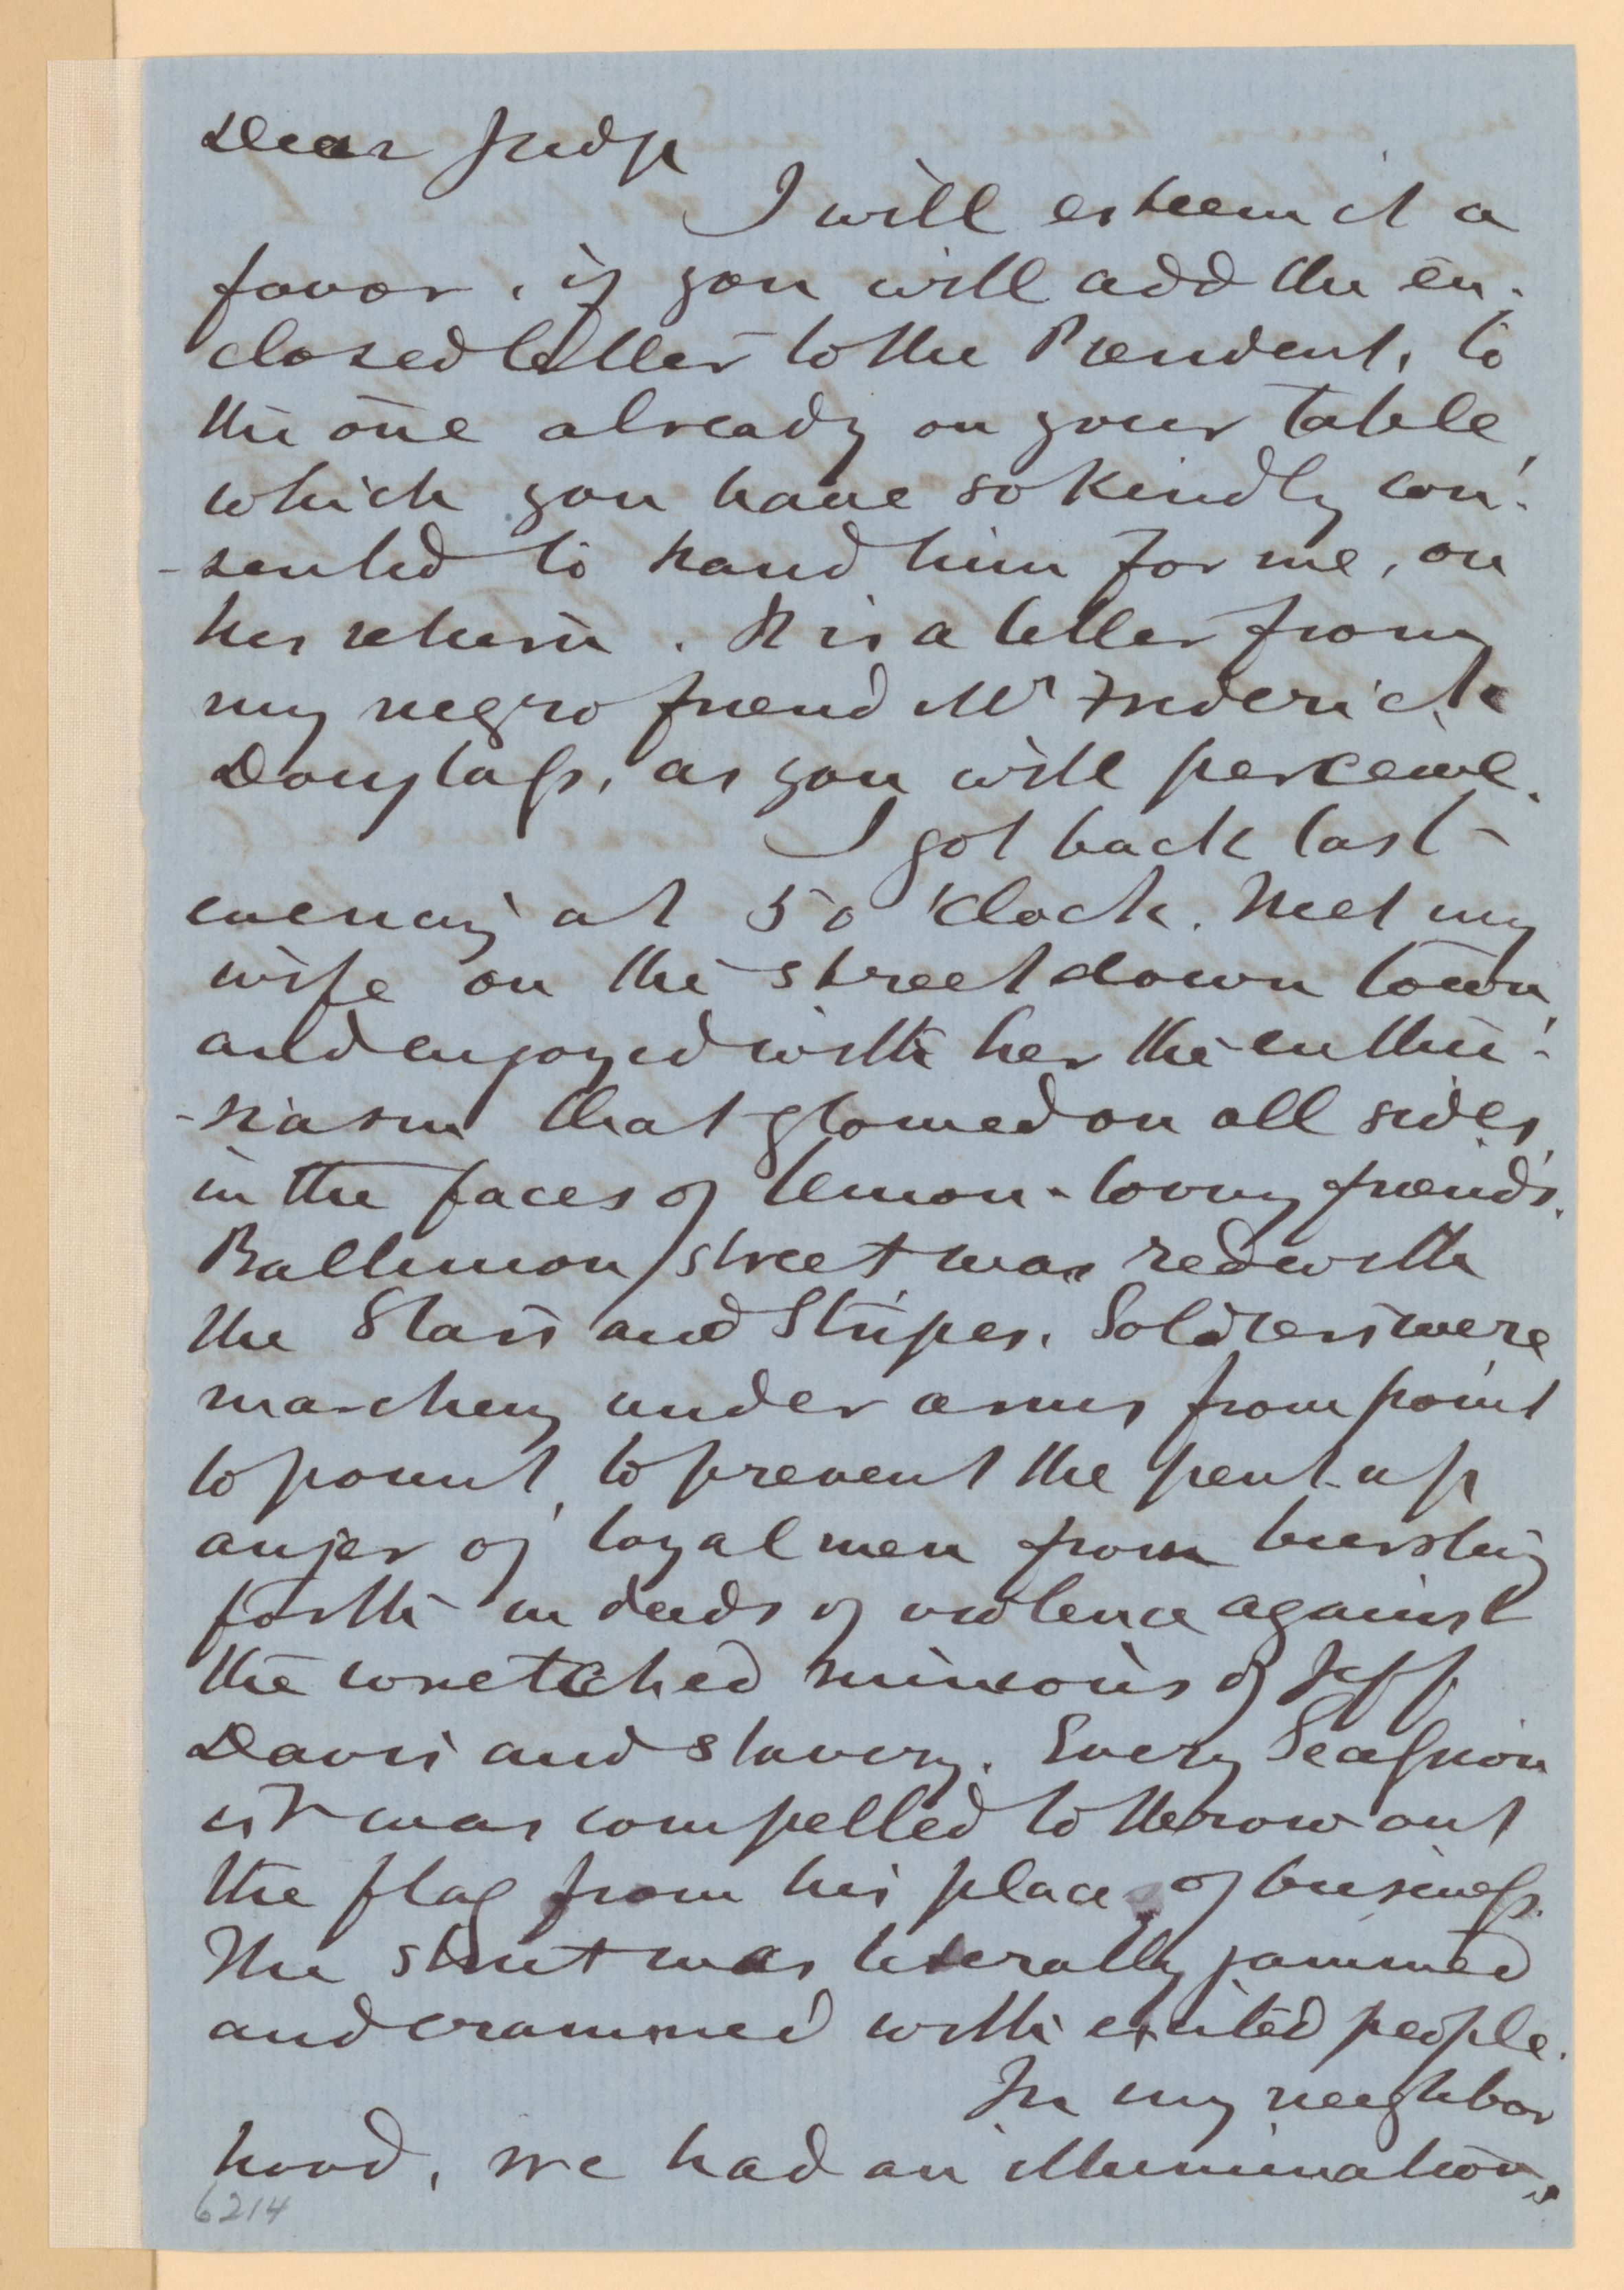 Dear Judge
I will esteem it a
favor, if you will add the en-
closed letter to the President, to
the one already on your table,
which you have so kindly con-
-sented to hand him for me, on
his return. It is a letter from
my negro friend Mr Frederick
Douglass, as you will perceive.
I got back last
evening at 5 o'clock. Met my
wife on the street down town,
and enjoyed with her the enthu-
-siasm that glowed on all sides,
in the faces of Union-loving friends.
Baltimore street was red with
the Stars and Stripes. Soldiers were
marching under arms from point
to point, to prevent the pent-up
anger of loyal men from bursting
forth in deeds of violence against
the wretched minions of Jeff.
Davis and slavery. Every Secession
ist was compelled to throw out
the flag from his place of business.
The street was literally jammed
and crammed with excited people.
In my neighbor
hood, we had an illumination,
6214